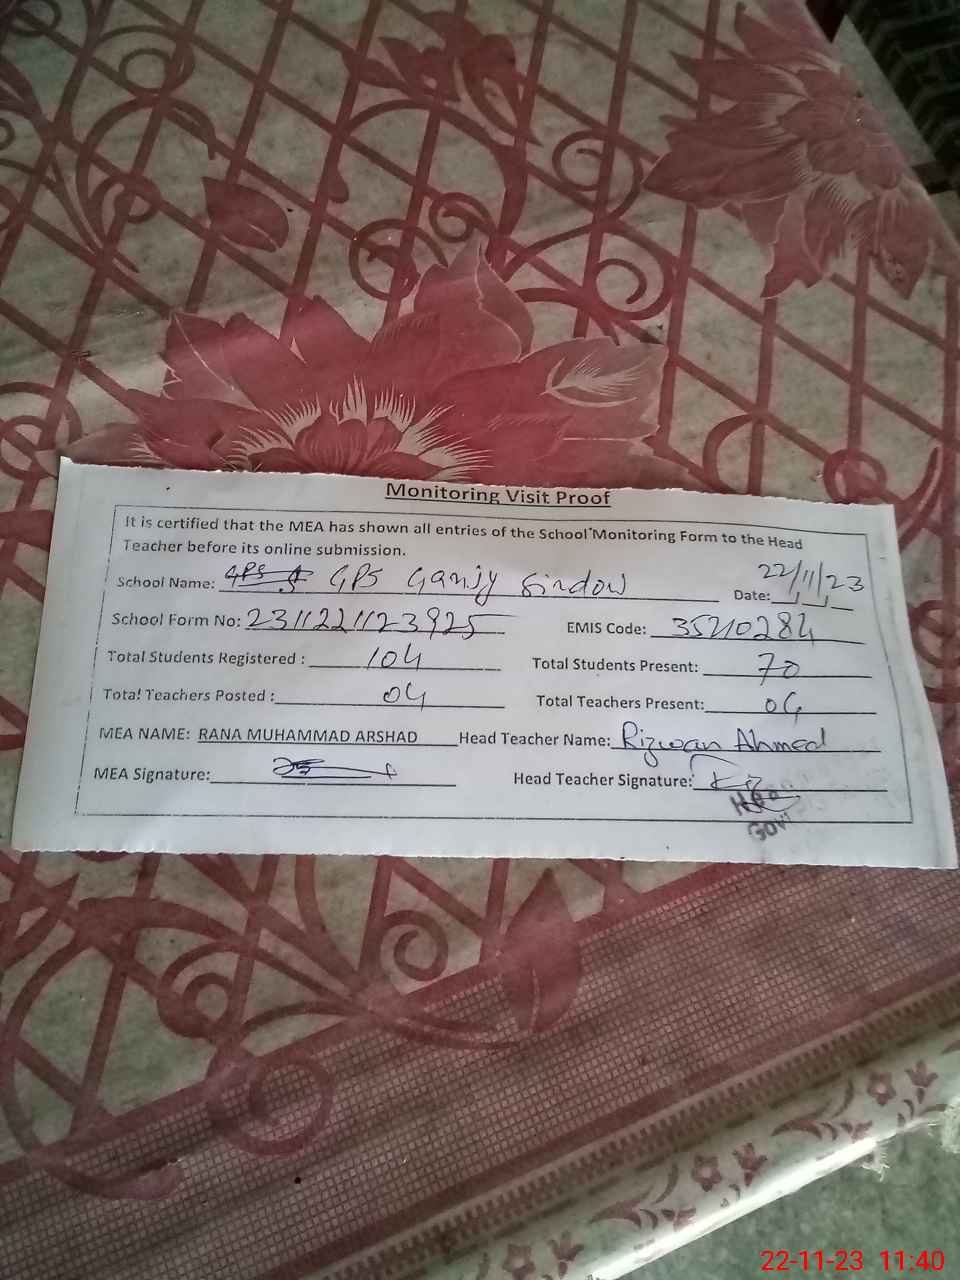 Monitoring Visit Proof
It is certified that the MEA has shown all entries of the School Monitoring Form to the Head
Teacher before its online submission.
School Name: GPS Ganjy Sindow Date: 22/11/23
School Form No: 2311221123925 EMIS Code: 35210284
Total Students Registered : 104 Total Students Present: 70
Total Teachers Posted : 04 Total Teachers Present: 04
MEA NAME: RANA MUHAMMAD ARSHAD Head Teacher Name: Rizwan Ahmed
MEA Signature: Head Teacher Signature:
Hea
Govt
22-11-23 11:40